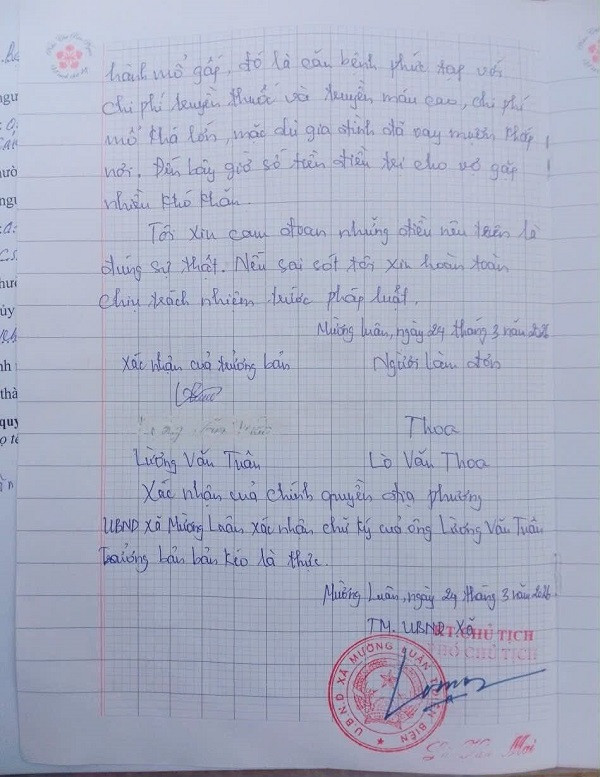 hành mổ gấp, đó là căn bệnh phức tạp với
chi phí truyền thuốc và truyền máu cao, chi phí
mổ khá lớn, mặc dù gia đình đã vay mượn khắp
nơi. Đến bây giờ số tiền điều trị cho vợ gặp
nhiều khó khăn.
Tôi xin cam đoan những điều nêu trên là
đúng sự thật. Nếu sai sót tôi xin hoàn toàn
chịu trách nhiệm trước pháp luật.
Mường Luân, ngày 24 tháng 3 năm 2026
Xác nhận của trưởng bản
Người làm đơn
Thoa
Lường Văn Tuân
Lò Văn Thoa
Xác nhận của chính quyền địa phương
UBND xã Mường Luân xác nhận chữ ký của ông Lường Văn Tuân
Trưởng bản bản Kéo là thực.
Mường Luân, ngày 24 tháng 3 năm 2026
TM. UBND xã
KT CHỦ TỊCH
PHÓ CHỦ TỊCH
U.B.N.D XÃ MƯỜNG LUÂN T. ĐIỆN BIÊN